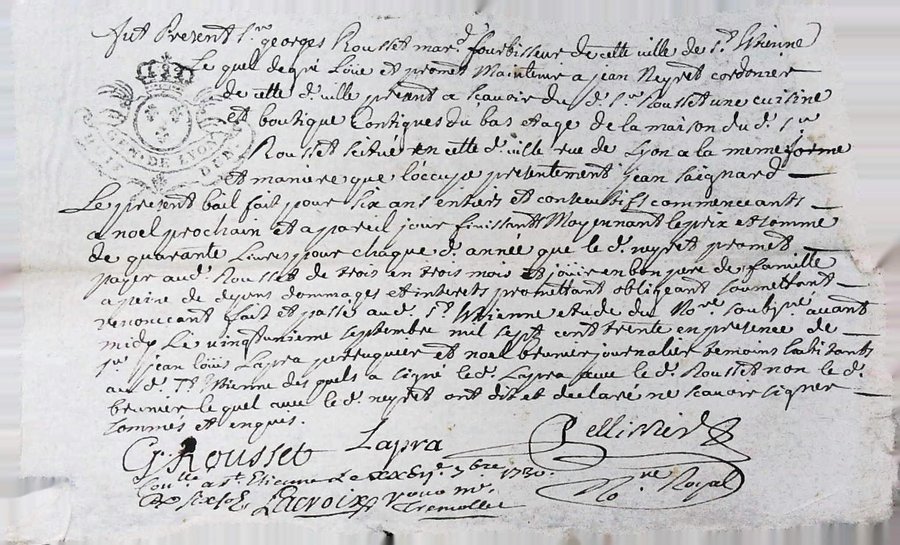 fut Present Sr. georges Rousset mard. fourbisseur de cette ville de St. Etienne
Le quel de gré Loüe et promet Maintenir a jean Neyret cordonier
de cette d. ville present a scavoir du d. Sr. Rousset une cuisine
et boutique Contigues du bas etage de la maison du d. Sr.
Rousset scitué en cette d. ville rue de Lyon a la meme forme
et maniere que l'occupe presentement jean Paignard
GEN. DE LYON
Le present bail fait pour six ans entiers et consecutifs commenceants
a noel prochain et a pareil jour finissants Moyennant le prix et somme
de quarante Livres pour chaque d. année que le d. neyret promet
payer aud. Rousset de trois en trois mois et joüir en bon pere de famille
a peine de depens dommages et interets promettant obligeant soumettant
renonceant fait et passé aud. St. Etienne etude du Nore. soubsne. avant
midy Le vingtunieme septembre mil sept cent trente en presence de
Sr. jean loüis Lapra perruquier et noel brunier journalier temoins habitants
aud. St. Etienne des quels a signé led. Lapra avec le d. Rousset non le d.
brunier le quel avec le d. neyret ont dit et declaré ne scavoir signer
sommes et enquis.
G Rousset Lapra Pellissier
Coulle a St. Etienne Le 7bre 1730. No.re Royal
R. six sols Lacroix